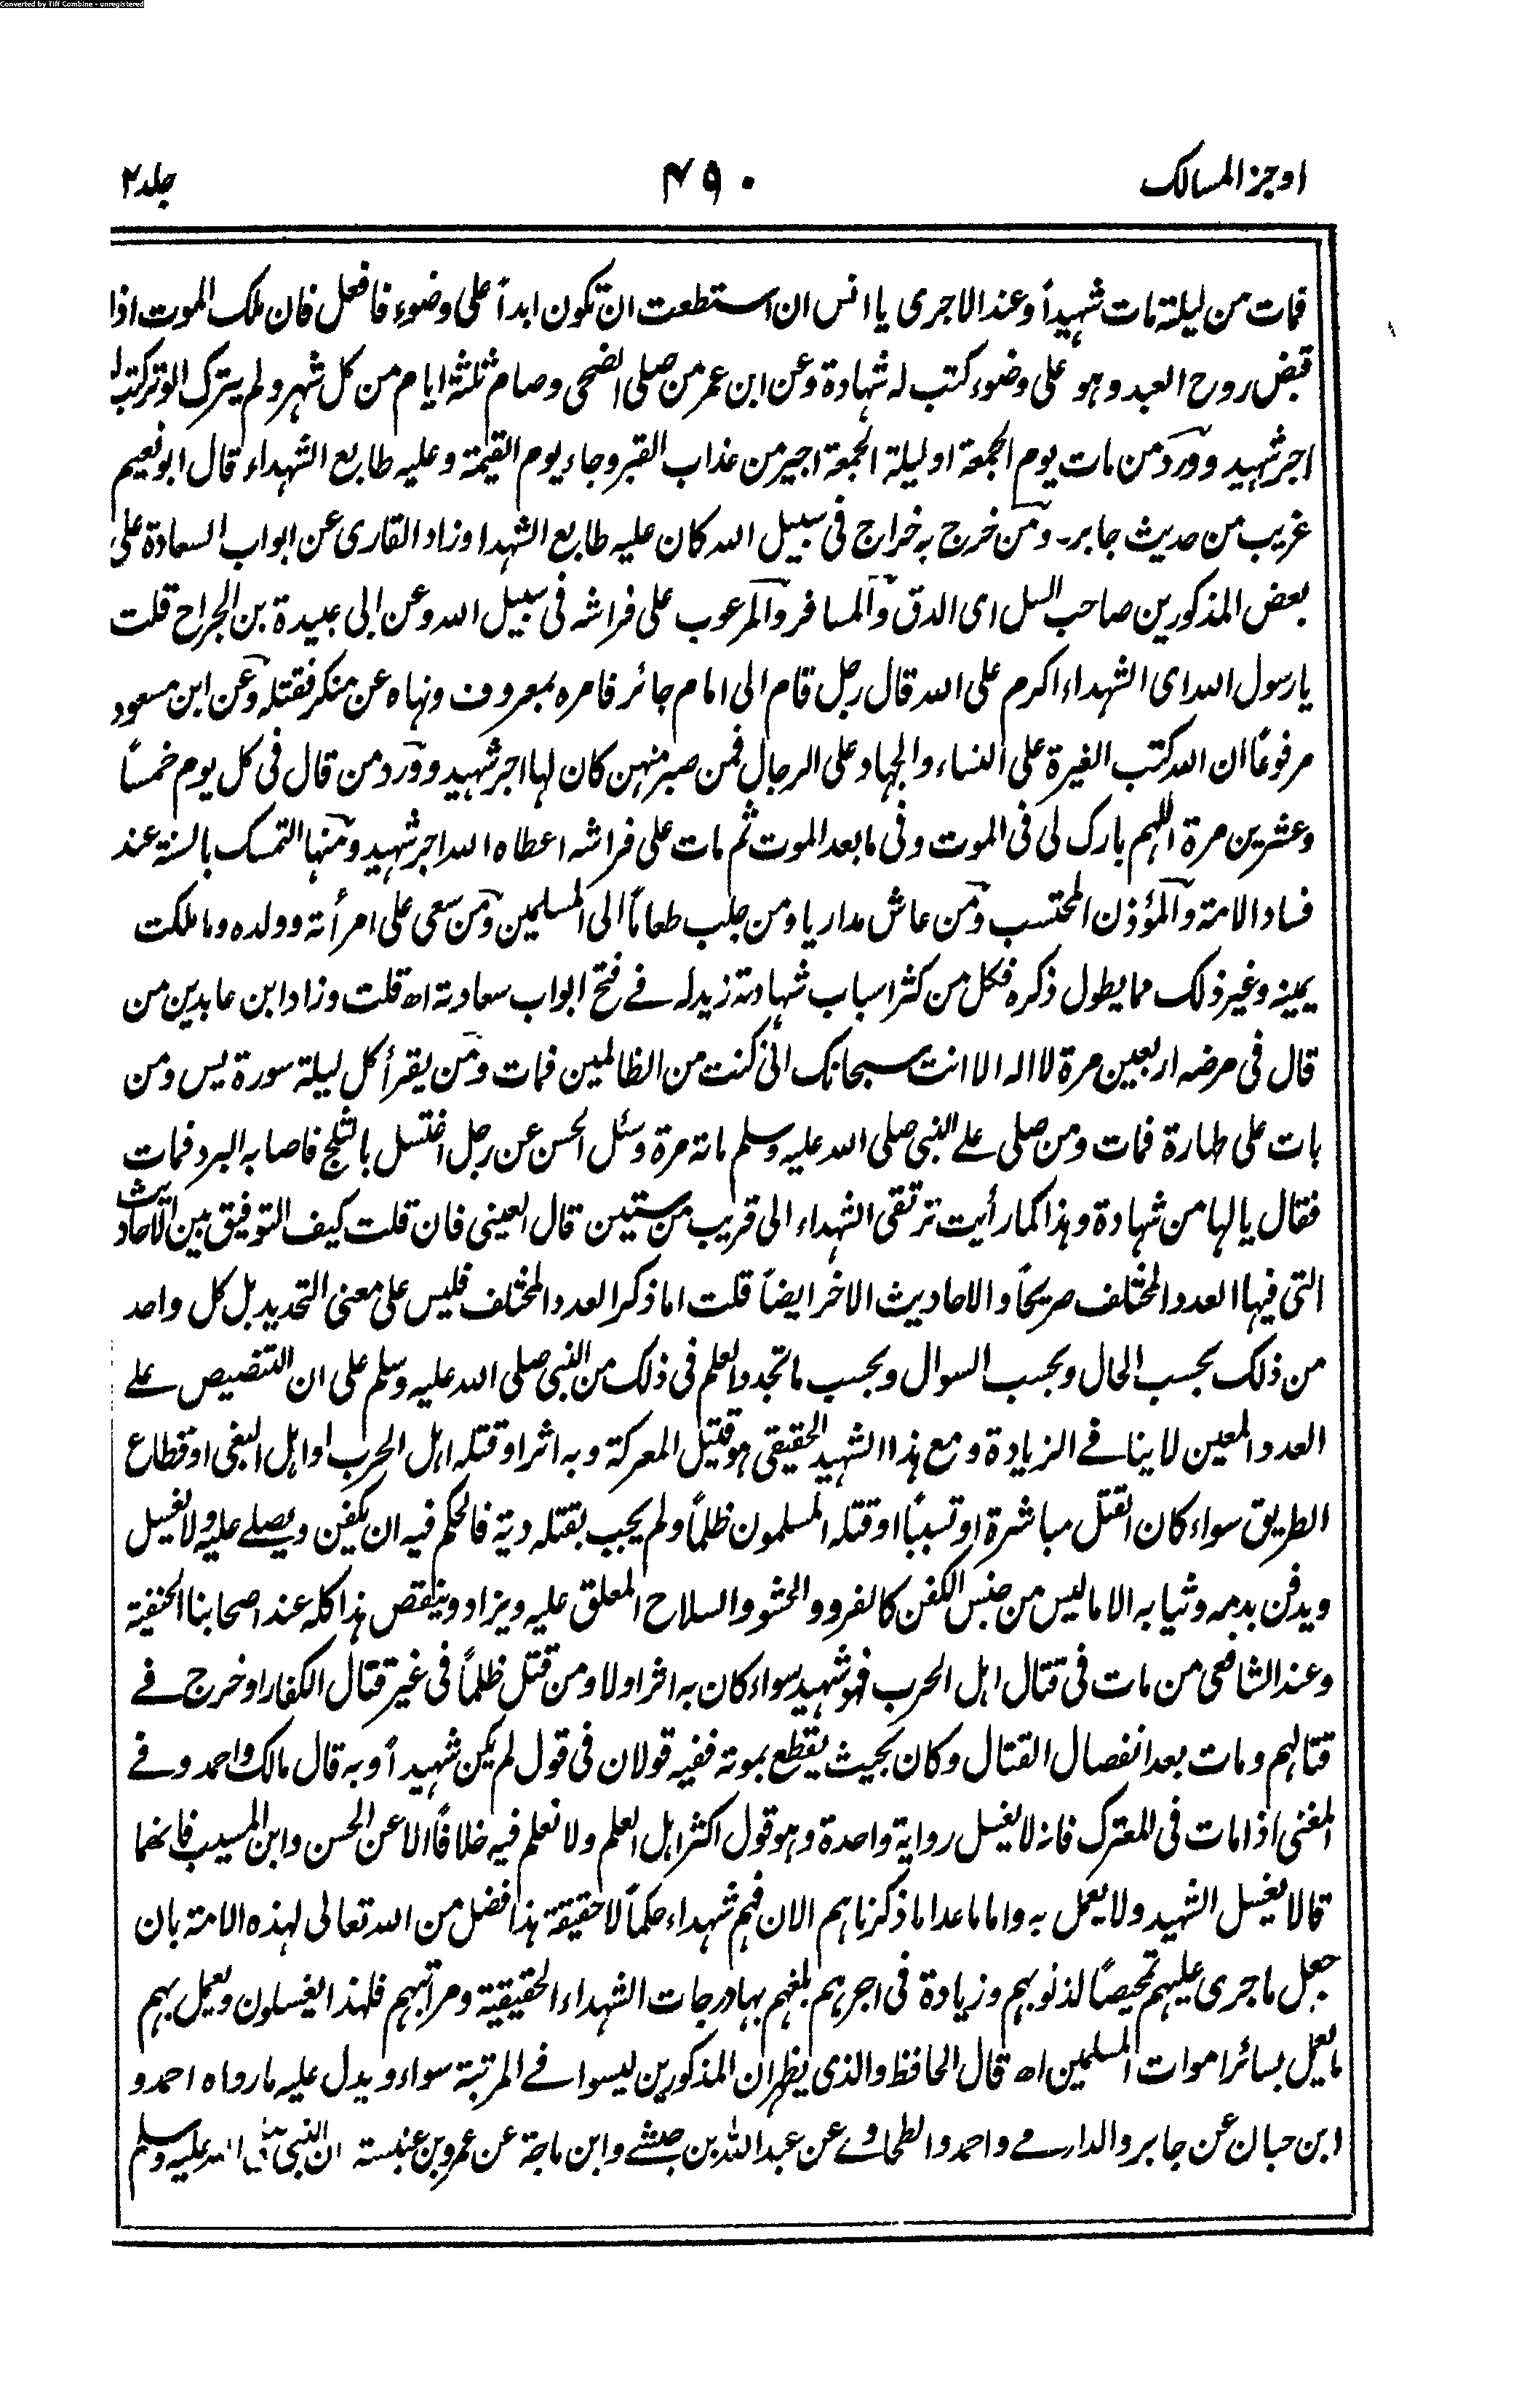 Converted by Tiff Combine - unregistered
اوجز المسالك ٤٩٠ جلد ٢
فمات من ليلته مات شهيداً وعند الاجرى يا انس ان استطعت ان تكون ابداً على وضوء فافعل فان ملك الموت اذا
قبض روح العبد وهو على وضوء كتب له شهادة وعن ابن عمر من صلى الضحى وصام ثلثة ايام من كل شهر ولم يترك الوتر كتب له
اجر شهيد وورد من مات يوم الجمعة او ليلة الجمعة اجير من عذاب القبر وجاء يوم القيمة وعليه طابع الشهداء قال ابو نعيم
غريب من حديث جابر۔ ومن خرج به خراج فى سبيل الله كان عليه طابع الشهدا وزاد القارى عن ابواب السعادة على
بعض المذكورين صاحب السل اى الدق والمسافر والمرعوب على فراشه فى سبيل الله وعن ابى عبيدة بن الجراح قلت
يا رسول الله اى الشهداء اكرم على الله قال رجل قام الى امام جائر فامره بمعروف ونهاه عن منكر فقتله وعن ابن مسعود
مرفوعاً ان الله كتب الغيرة على النساء والجهاد على الرجال فمن صبر منهن كان لها اجر شهيد وورد من قال فى كل يوم خمساً
وعشرين مرة اللهم بارك لى فى الموت وفى ما بعد الموت ثم مات على فراشه اعطاه الله اجر شهيد ومنها التمسك بالسنة عند
فساد الامة والمؤذن المحتسب ومن عاش مداريا ومن جلب طعاماً الى المسلمين ومن سعى على امرأته وولده وما ملكت
يمينه وغير ذلك مما يطول ذكره فكل من كثر اسباب شهادته زيد له فے فتح ابواب سعادته اھ قلت وزاد ابن عابدين من
قال فى مرضه اربعين مرة لا اله الا انت سبحانك انى كنت من الظالمين فمات ومن يقرأ كل ليلة سورة يس ومن
بات على طهارة فمات ومن صلى علے النبى صلى الله عليه وسلم مائة مرة وسئل الحسن عن رجل اغتسل بالثلج فاصابه البرد فمات
فقال يا لها من شهادة وهذا كما رأيت ترتقى الشهداء الى قريب من ستين قال العينى فان قلت كيف التوفيق بين الاحاديث
التى فيها العدد المختلف صريحاً والاحاديث الاخر ايضاً قلت اما ذكر العدد المختلف فليس على معنى التحديد بل كل واحد
من ذلك بحسب الحال وبحسب السوال وبحسب ما تجدد العلم فى ذلك من النبى صلى الله عليه وسلم على ان التنصيص علے
العدد المعين لا ينافے الزيادة ومع هذا الشهيد الحقيقى هو قتيل المعركة وبه اثر او قتله اهل الحرب او اهل البغى او قطاع
الطريق سواء كان القتل مباشرة او تسبباً او قتله المسلمون ظلماً ولم يجب بقتله دية فالحكم فيه ان يكفن ويصلے عليه ولا يغسل
ويدفن بدمه وثيابه الا ما ليس من جنس الكفن كالفرو والحشو والسلاح المعلق عليه ويزاد وينقص هذا كله عند اصحابنا الحنفية
وعند الشافعى من مات فى قتال اهل الحرب فهو شهيد سواء كان به اثر او لا ومن قتل ظلماً فى غير قتال الكفار او خرج فے
قتالهم ومات بعد انفصال القتال وكان بحيث يقطع بموته ففيه قولان فى قول لم يكن شهيداً وبه قال مالك واحمد وفے
المغنى اذا مات فى المعترك فانه لا يغسل رواية واحدة وهو قول اكثر اهل العلم ولا نعلم فيه خلافاً الا عن الحسن وابن المسيب فانهما
قالا يغسل الشهيد ولا يعمل به واما ما عدا ما ذكرناهم الان فهم شهداء حكماً لا حقيقة هذا فضل من الله تعالى لهذه الامة بان
جعل ما جرى عليهم تمحيصاً لذنوبهم وزيادة فى اجرهم بلغهم بها درجات الشهداء الحقيقية ومراتبهم فلهذا يغسلون ويعمل بهم
ما يعمل بسائر اموات المسلمين اھ قال الحافظ والذى يظهر ان المذكورين ليسوا فے المرتبة سواء ويدل عليه ما رواه احمد و
ابن حبان عن جابر والدارمے واحمد والطحاوے عن عبد الله بن حبشے وابن ماجة عن عمرو بن عنبسة ان النبى صلى الله عليه وسلم